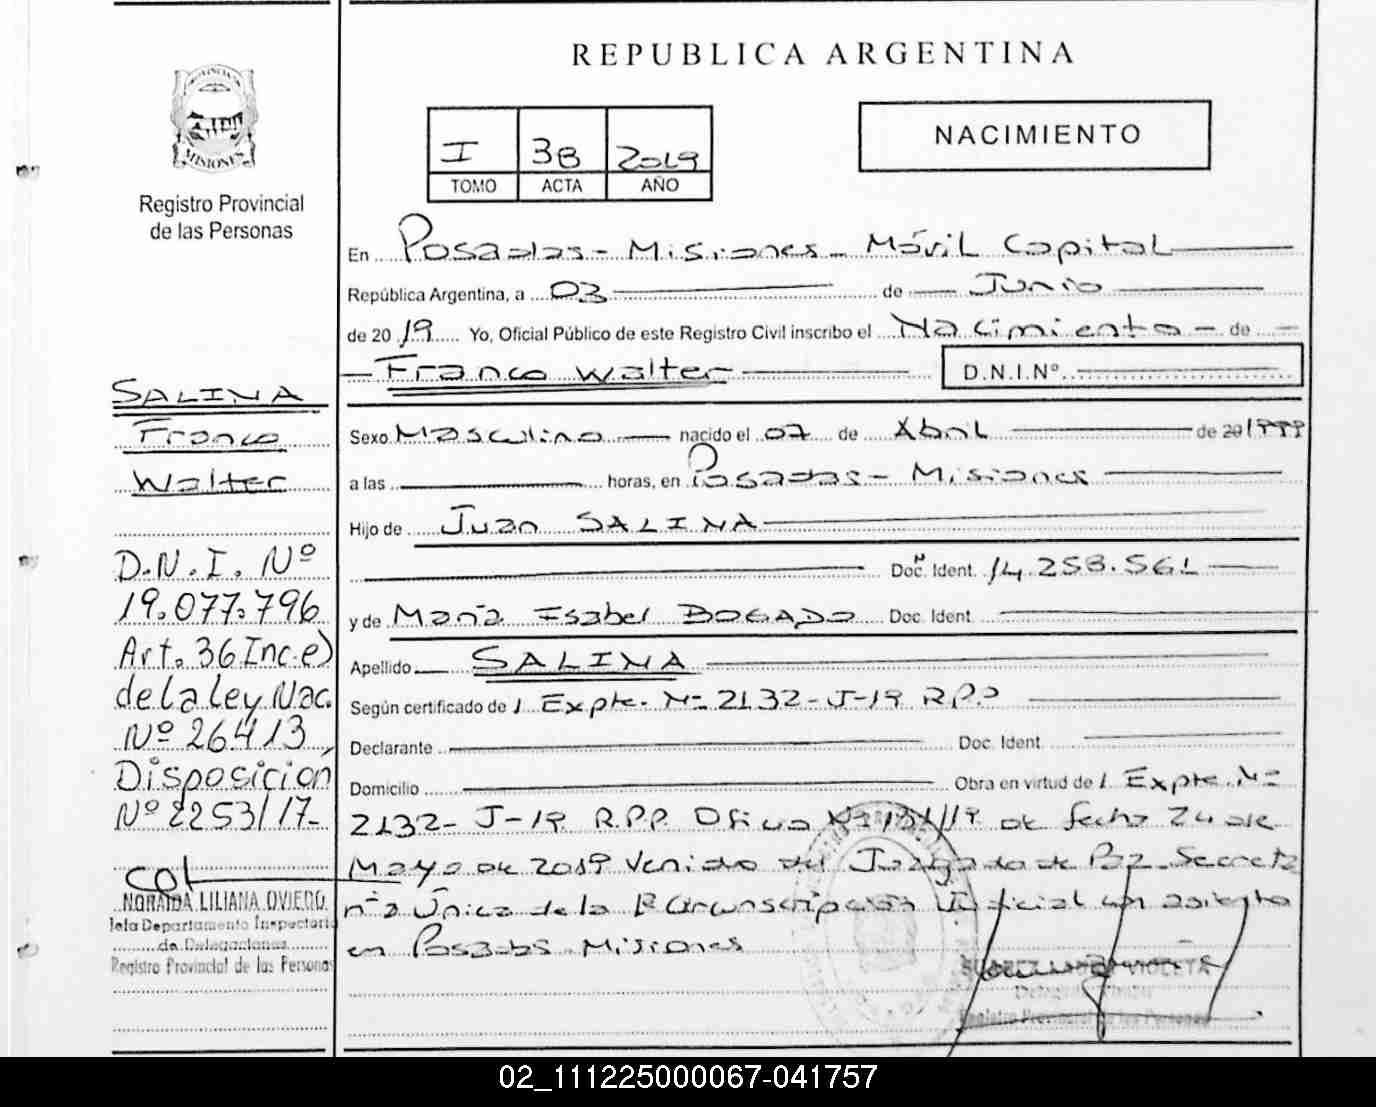 REPUBLICA ARGENTINA
PROVINCIA
MISIONES
Registro Provincial
de las Personas
I 38 2019
TOMO ACTA AÑO
NACIMIENTO
En Posadas - Misiones - Móvil Capital
República Argentina, a 03 de Junio
de 2019 Yo, Oficial Público de este Registro Civil inscribo el Nacimiento - de -
Franco Walter D.N.I.Nº
SALINA
Franco
Walter
D.N.I. Nº
19.077.796
Art. 36 Inc. e)
de la ley Nac.
Nº 26413,
Disposición
Nº 2253/17-
NORAIDA LILIANA OVIEDO
Jefa Departamento Inspectoría
de Delegaciones
Registro Provincial de las Personas
Sexo Masculino nacido el 07 de Abril de 20 1999
a las horas, en Posadas - Misiones
Hijo de Juan SALINA
Doc. Ident. 14.258.561
y de María Isabel BOGADO Doc. Ident.
Apellido SALINA
Según certificado de / Expte. Nº 2132-J-19 R.P.P
Declarante Doc. Ident.
Domicilio Obra en virtud de / Expte. Nº
2132-J-19 R.P.P. Oficio Nº /19 de fecha 24 de
Mayo de 2019 Venido del Juzgado de Paz Secreta
ría Única de la 1ª Circunscripción Judicial con asiento
en Posadas - Misiones
VIOLETA
Registro Provincial de las Personas
02_111225000067-041757